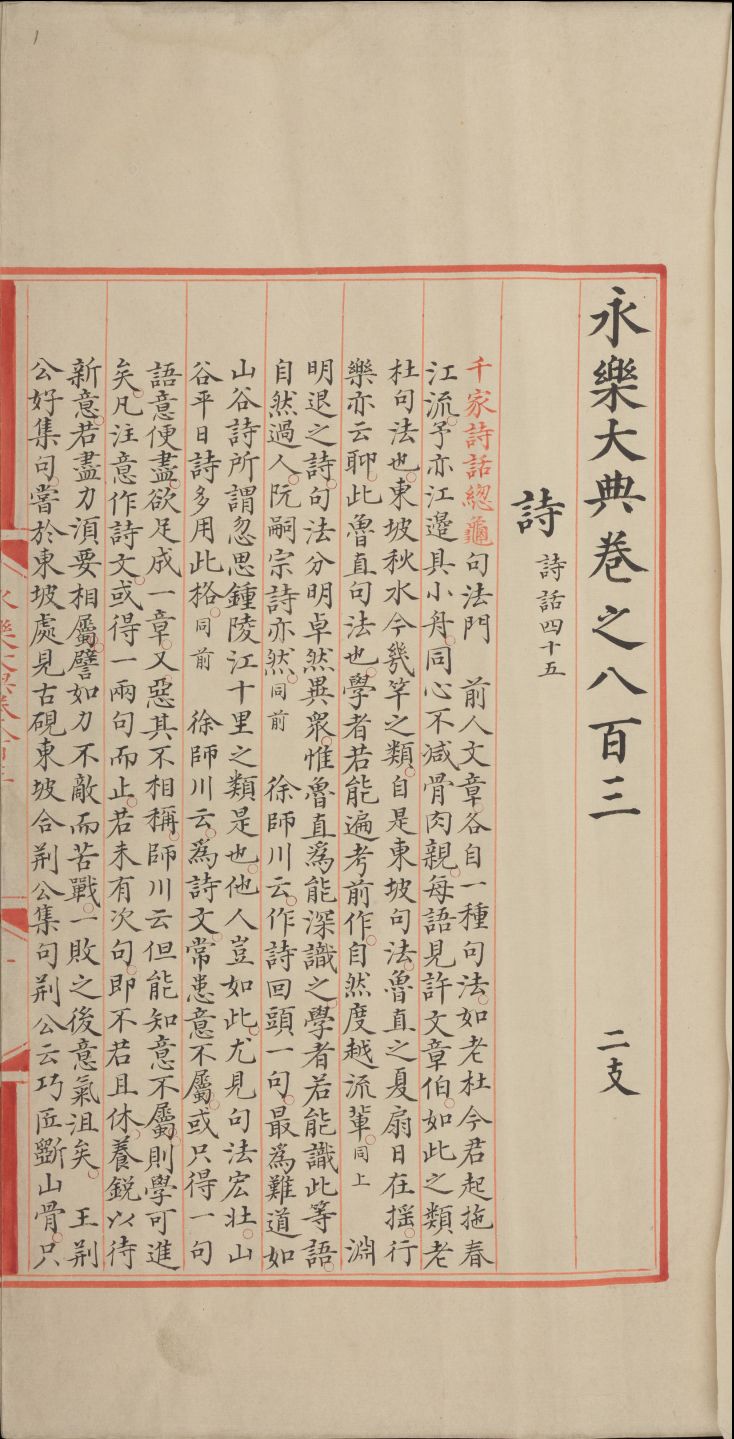 永樂大典卷之八百三　二支
詩　詩話四十五
千家詩話總龜句法門　前人文章。各自一種句法。如老杜今君起拖春
江流。予亦江邊具小舟。同心不減骨肉親。每語見許文章伯。如此之類。老
杜句法也。東坡秋水今幾竿之類。自是東坡句法。魯直之夏扇日在摇。行
樂亦云聊。此魯直句法也。學者若能遍考前作。自然度越流輩。同上　淵
明退之詩。句法分明。卓然異衆。惟魯直爲能深識之。學者若能識此等語。
自然過人。阮嗣宗詩亦然。同前　徐師川云。作詩回頭一句。最爲難道。如
山谷詩所謂忽思鍾陵江十里之類是也。他人豈如此。尤見句法宏壯。山
谷平日詩多用此格。同前　徐師川云。爲詩文。常患意不屬。或只得一句
語意便盡。欲足成一章。又惡其不相稱。師川云但能知意不屬。則學可進
矣。凡注意作詩文。或得一兩句而止。若未有次句。即不若且休。養鋭以待
新意。若盡力。湏要相屬。譬如力不敵而苦戰。一敗之後意氣沮矣。　王荆
公好集句。嘗於東坡處見古硯東坡合荆公集句荆公云巧匠斵山骨。只
永樂大典卷八百三
一
1